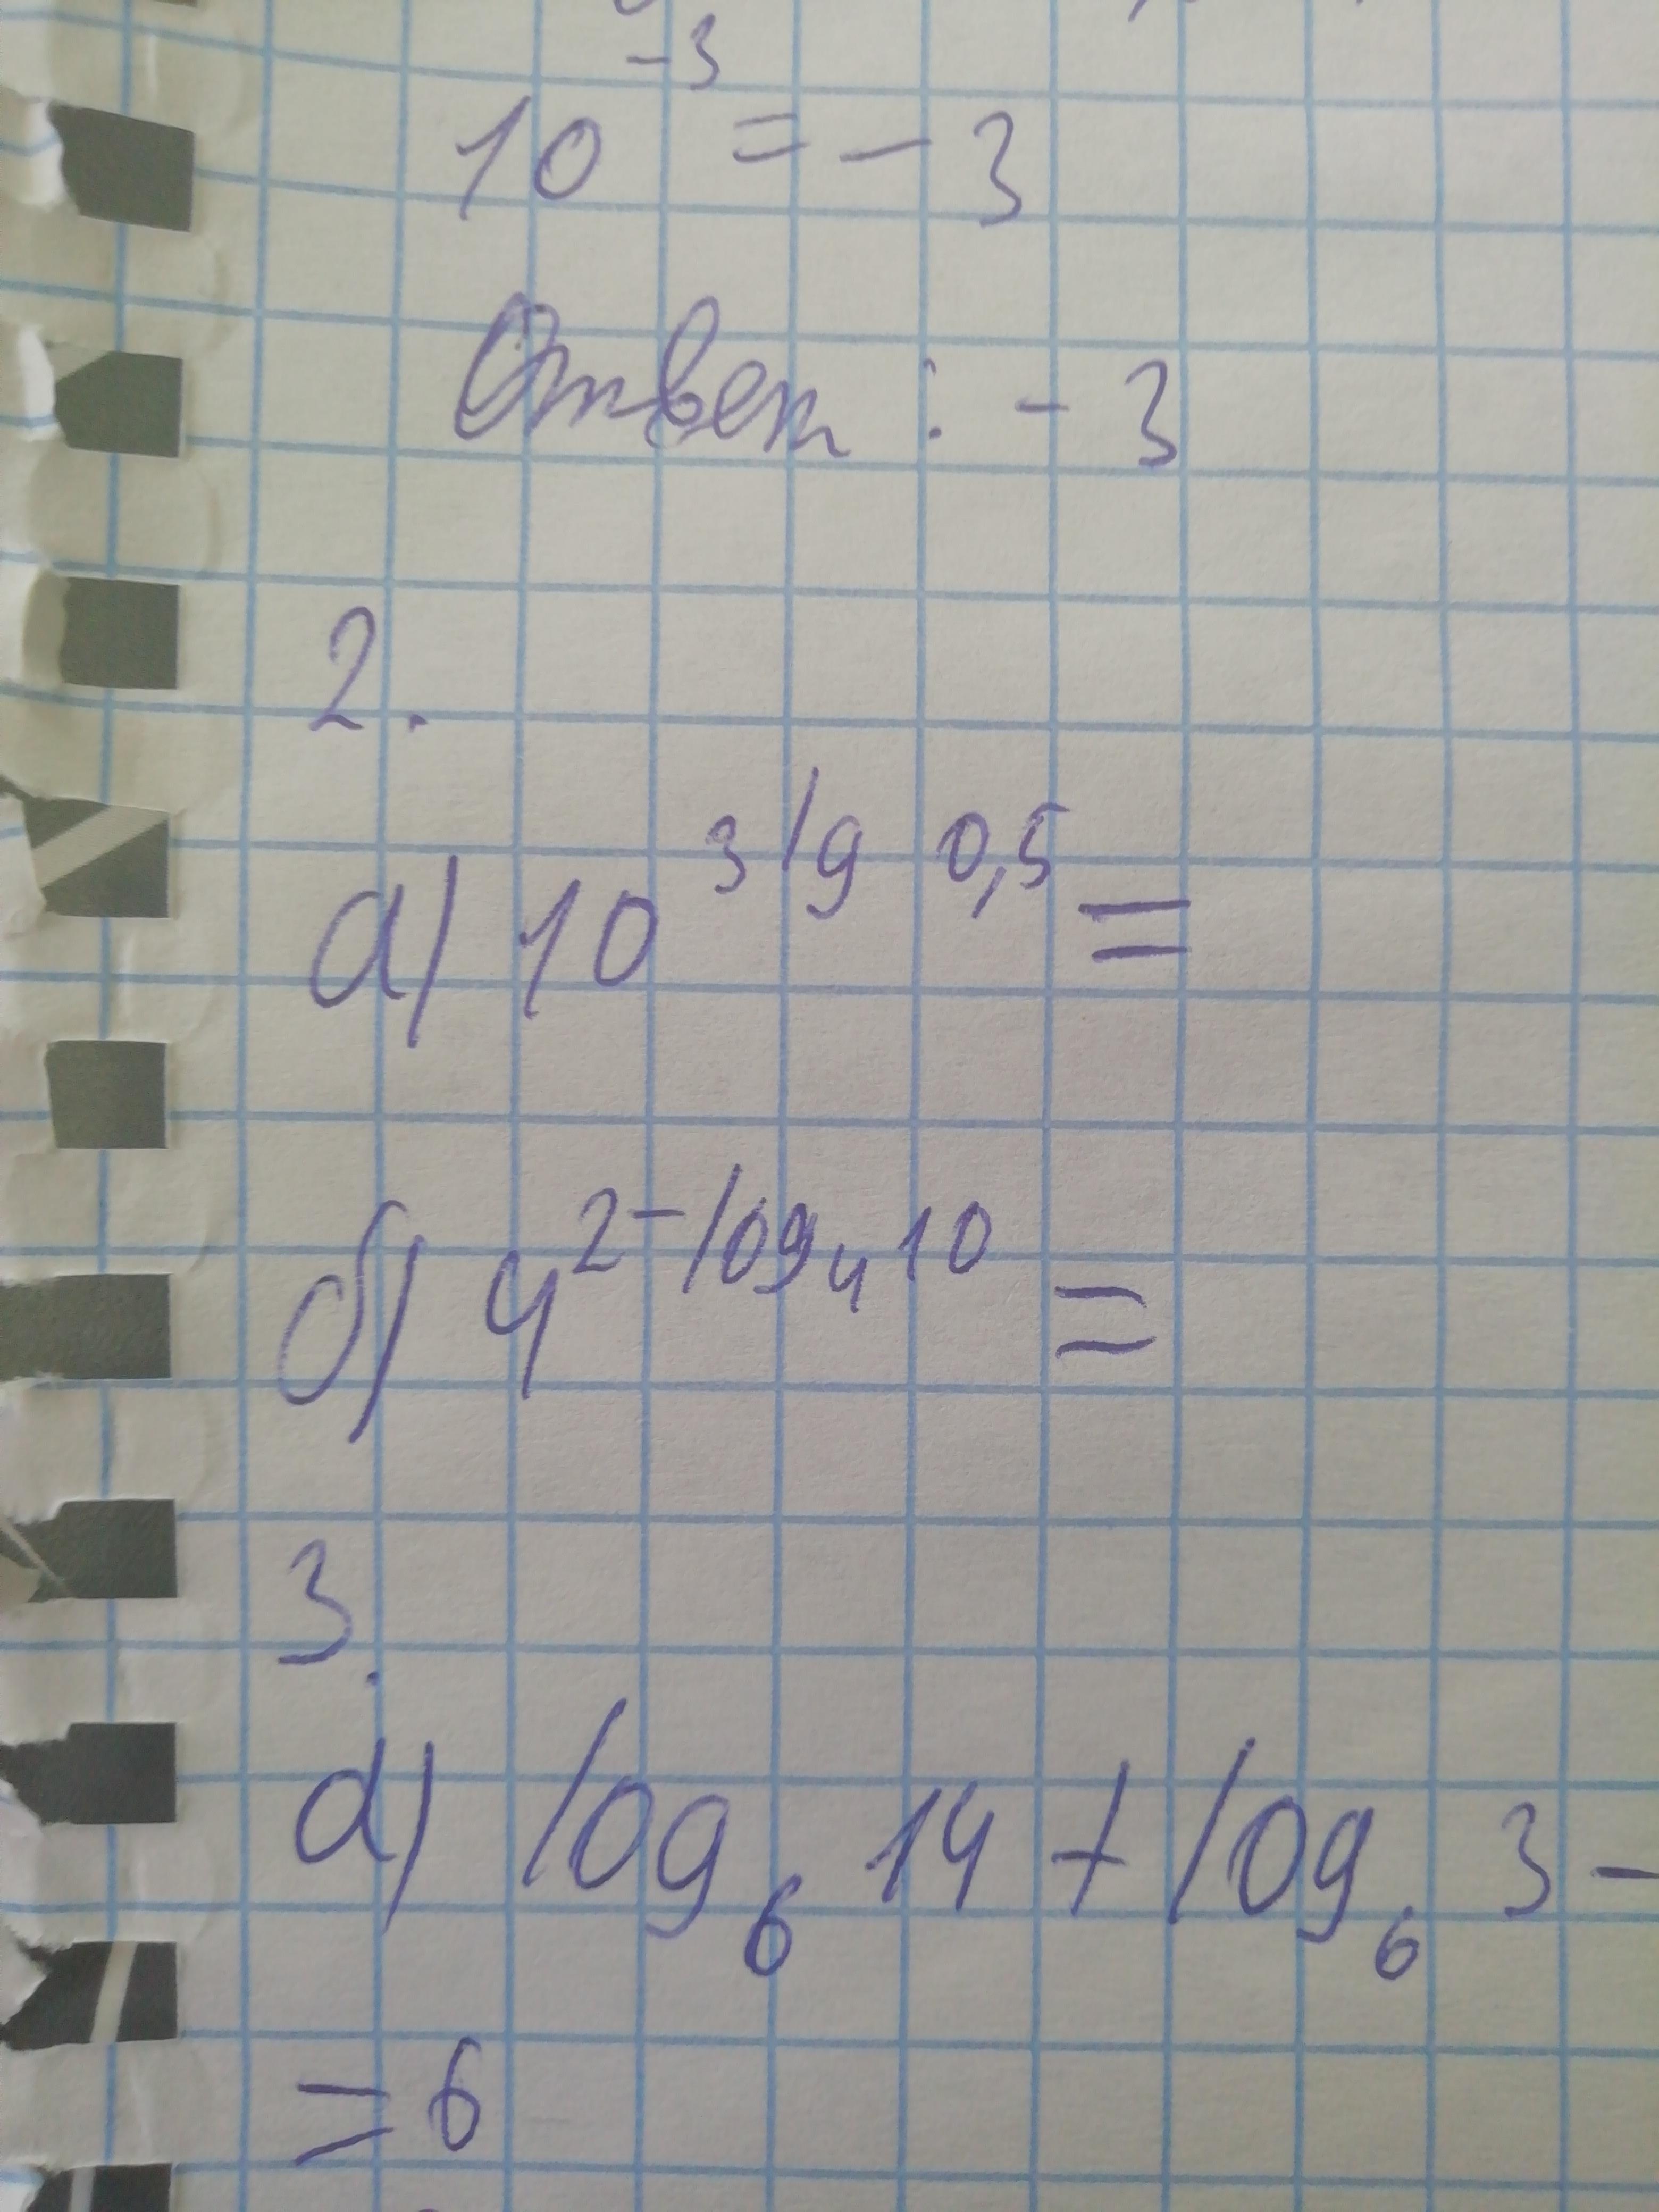 10⁻³ = -3
Ответ: -3
2.
а) 10³ˡᵍ ⁰,⁵ =
б) 4^2-log₄10 =
3.
а) log₆ 14 + log₆ 3 -
= 6